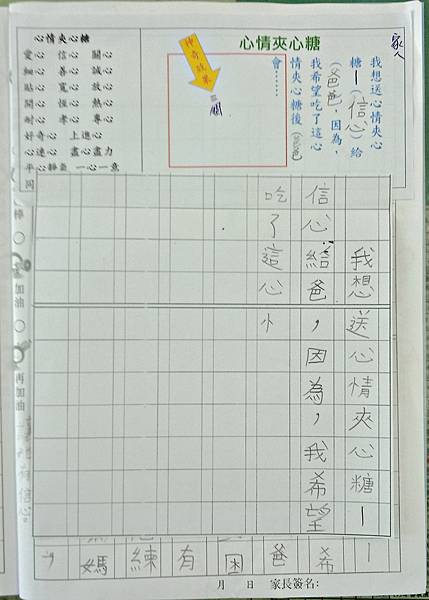 家人
心情夾心糖
我想送心情夾心
糖—(信心)給
(爸爸),因為,
我希望吃了這心
情夾心糖後(爸爸
會……
神奇效果
圖
心情夾心糖
愛心 信心 關心
細心 善心 誠心
貼心 寬心 放心
開心 恆心 熱心
耐心 孝心 專心
好奇心 上進心
心連心 盡心盡力
平心靜氣 一心一意
同
我想送心情夾心糖—
信心給爸,因為,我希望
吃了這心忄
棒 ○
加油 ○
再加油
有信心。
希
爸
困
有
練
媽
月 日 家長簽名: